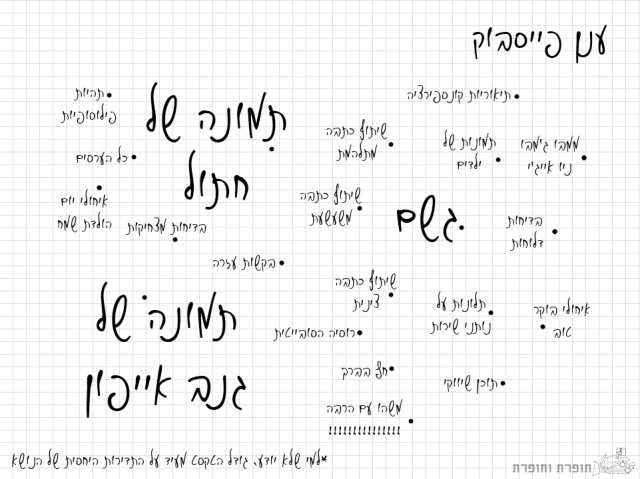 ענן פייסבוק
תיאוריות קונספירציה
תהיות
פילוסופיות
תמונה של
חתול
שיתוף כתבה
מתלהמת
תמונות של
ילדים
ממבו ג'מבו
ניו אייג'י
כל הערסים
איחולי יום
הולדת שמח
בדיחות מצחיקות
שיתוף כתבה
משעשעת
גשם
בדיחות
דלוחות
בקשות עזרה
שיתוף כתבה
צינית
תמונה של
גנב אייפון
תלונות על
נותני שירות
איחולי בוקר
טוב
רוסיה הסובייטית
חץ בברך
תוכן שיווקי
משהו עם הרבה
!!!!!!!!!!!!!!!
*למי שלא יודע, גודל הטקסט מעיד על התדירות היחסית של הנושא
תופרת וחופרת